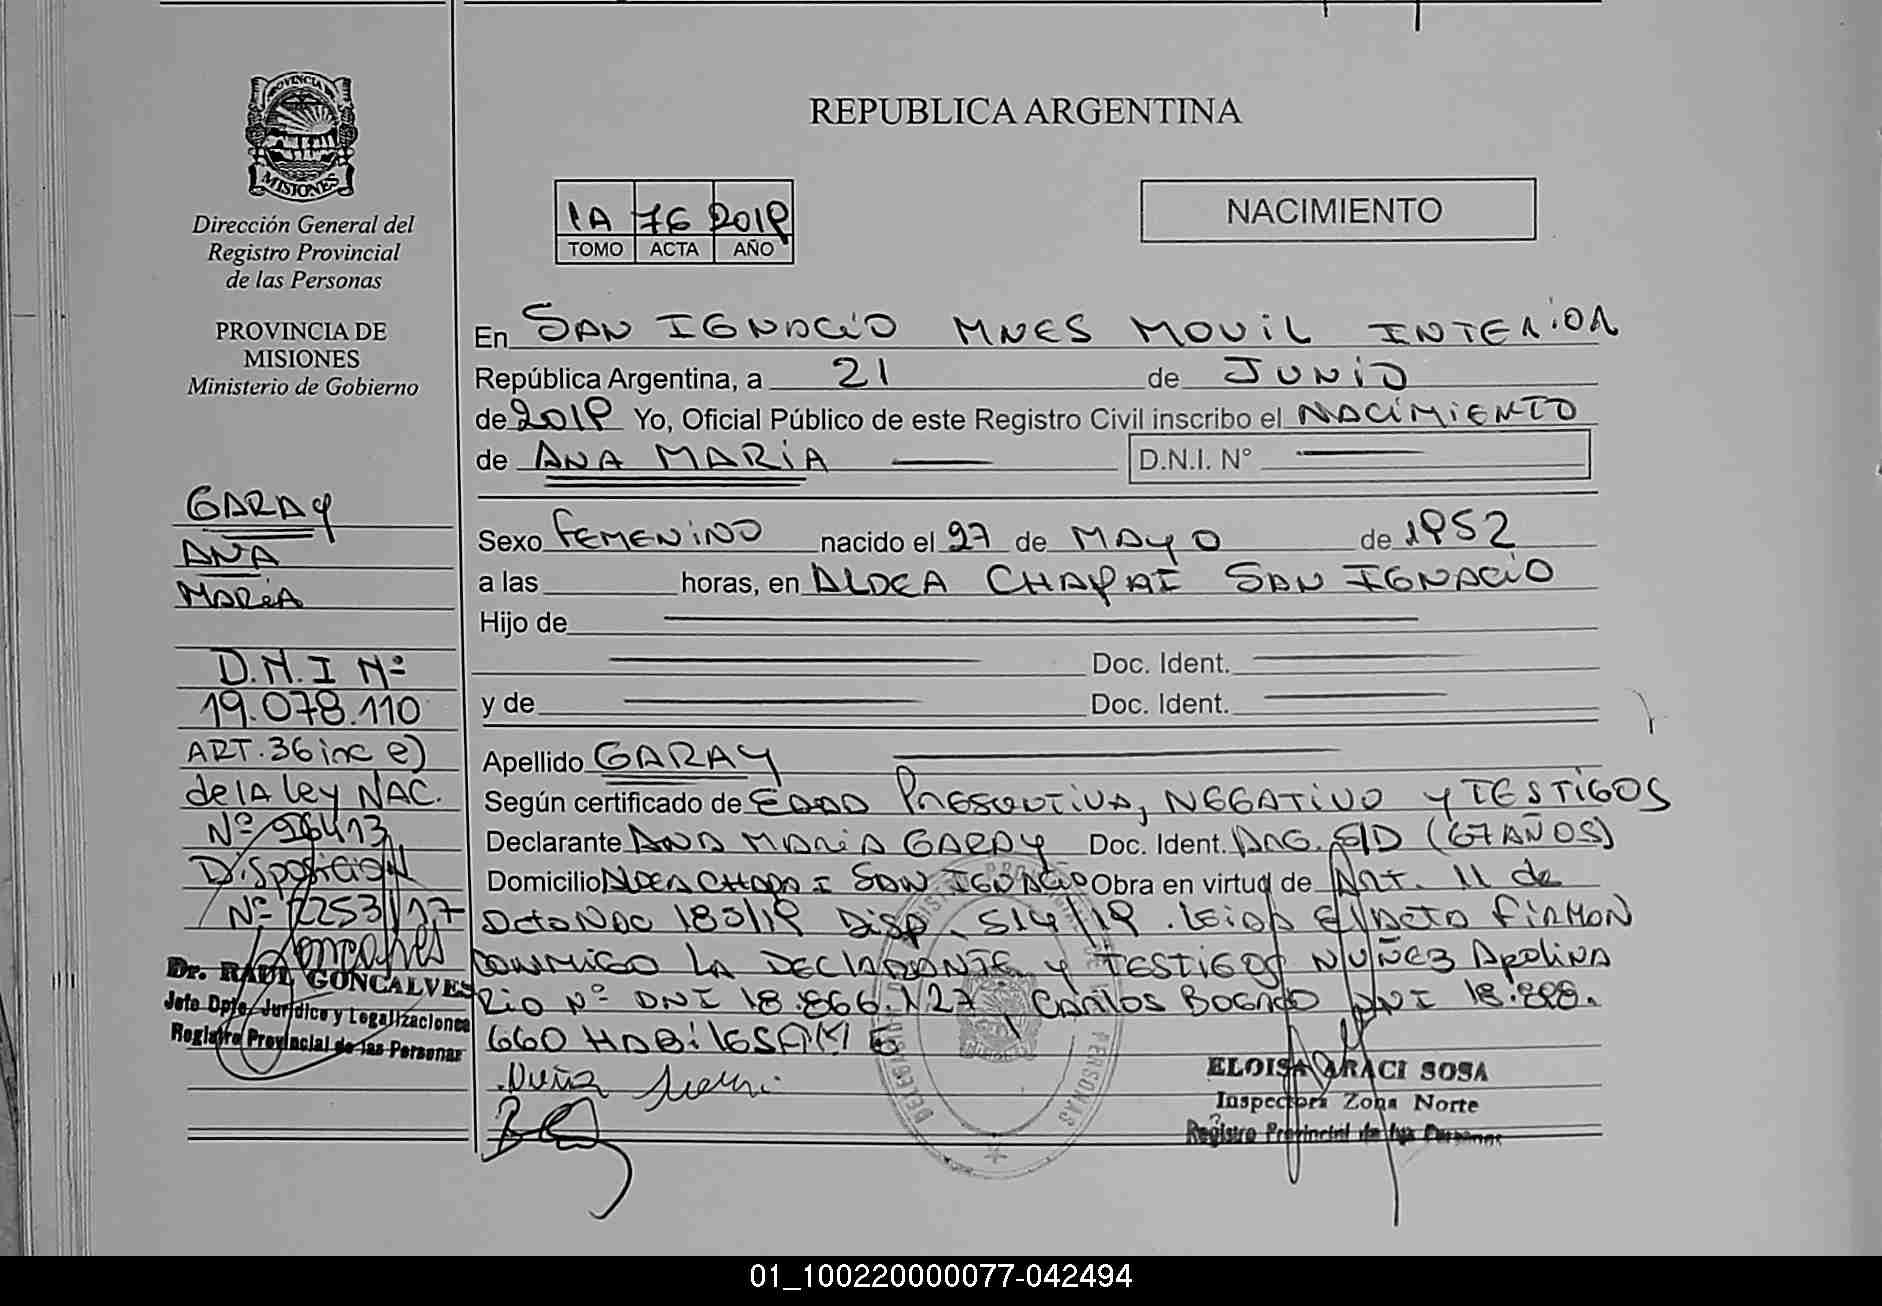 PROVINCIA DE
MISIONES
Dirección General del
Registro Provincial
de las Personas
PROVINCIA DE
MISIONES
Ministerio de Gobierno
GARAY
ANA
MARIA
D.N.I Nº
19.078.110
ART. 36 inc e)
de lA ley NAC.
Nº 26413
Disposicion
Nº 2253/17
Goncalves
Dr. RAUL GONCALVES
Jefe Dpto. Jurídico y Legalizaciones
Registro Provincial de las Personas
REPUBLICA ARGENTINA
1A 76 2019
TOMO ACTA AÑO
NACIMIENTO
En SAN IGNACIO MNES MOVIL INTERIOR
República Argentina, a 21 de JUNIO
de 2019 Yo, Oficial Público de este Registro Civil inscribo el NACIMIENTO
de ANA MARIA D.N.I. N°
Sexo FEMENINO nacido el 27 de MAYO de 1952
a las horas, en ALDEA CHAPAI SAN IGNACIO
Hijo de
Doc. Ident.
y de Doc. Ident.
Apellido GARAY
Según certificado de EDAD PRESUNTIVA, NEGATIVO y TESTIGOS
Declarante ANA MARIA GARAY Doc. Ident. ARG. S/D (67 AÑOS)
Domicilio ALDEA CHAPAI SAN IGNACIO Obra en virtud de ART. 11 de
Dcto NAC 183/19 Disp. 514/19. Leida El Acto FIRMAN
CONMIGO LA DECLARANTE y TESTIGOS NUÑEZ Apolina
Rio Nº DNI 18.866.127, CARLOS BOGADO DNI 18.898.
660 HABILES
ELOISA ARACI SOSA
Inspectora Zona Norte
Registro Provincial de las Personas
01_100220000077-042494